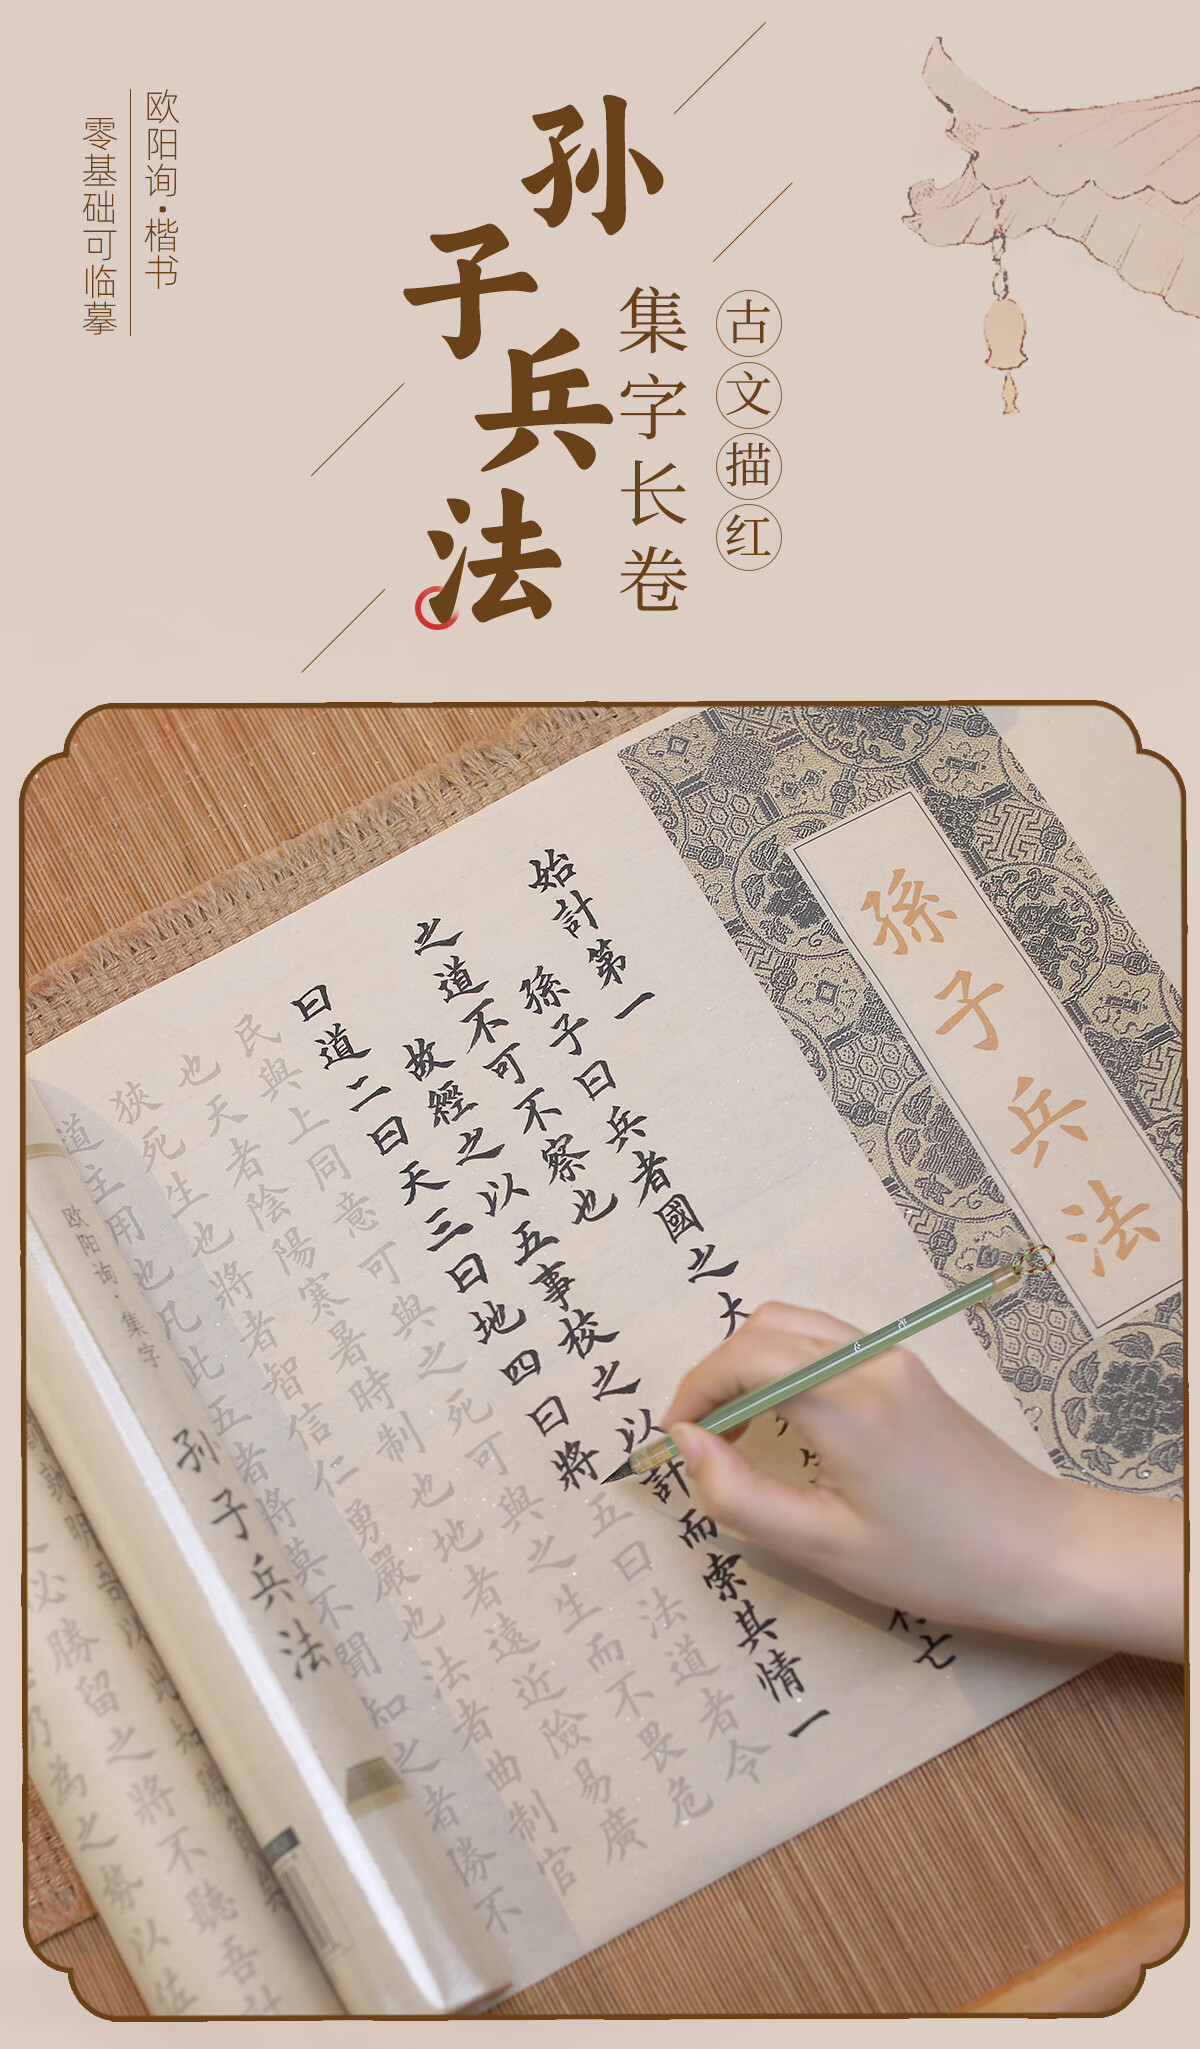 古文描红
集字长卷
孙子兵法
欧阳询·楷书
零基础可临摹
孫子兵法
始計第一
孫子曰兵者國之大
亡
之道不可不察也
故經之以五事校之以計而索其情一
曰道二曰天三曰地四曰將五曰法道者令
民與上同意可與之死可與之生而不畏危
也天者陰陽寒暑時制也地者遠近險易廣
狹死生也將者智信仁勇嚴也法者曲制官
道主用也凡此五者將莫不聞知之者勝不
欧阳询·集字
孙子兵法
必勝留之將不聽吾計
乃為之勢以佐